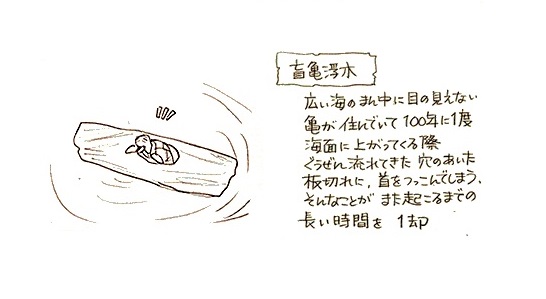 盲亀浮木
広い海のまん中に目の見えない
亀が住んでいて100年に1度
海面に上がってくる際
ぐうぜん流れてきた穴のあいた
板切れに、首をつっこんでしまう、
そんなことがまた起こるまでの
長い時間を 1却